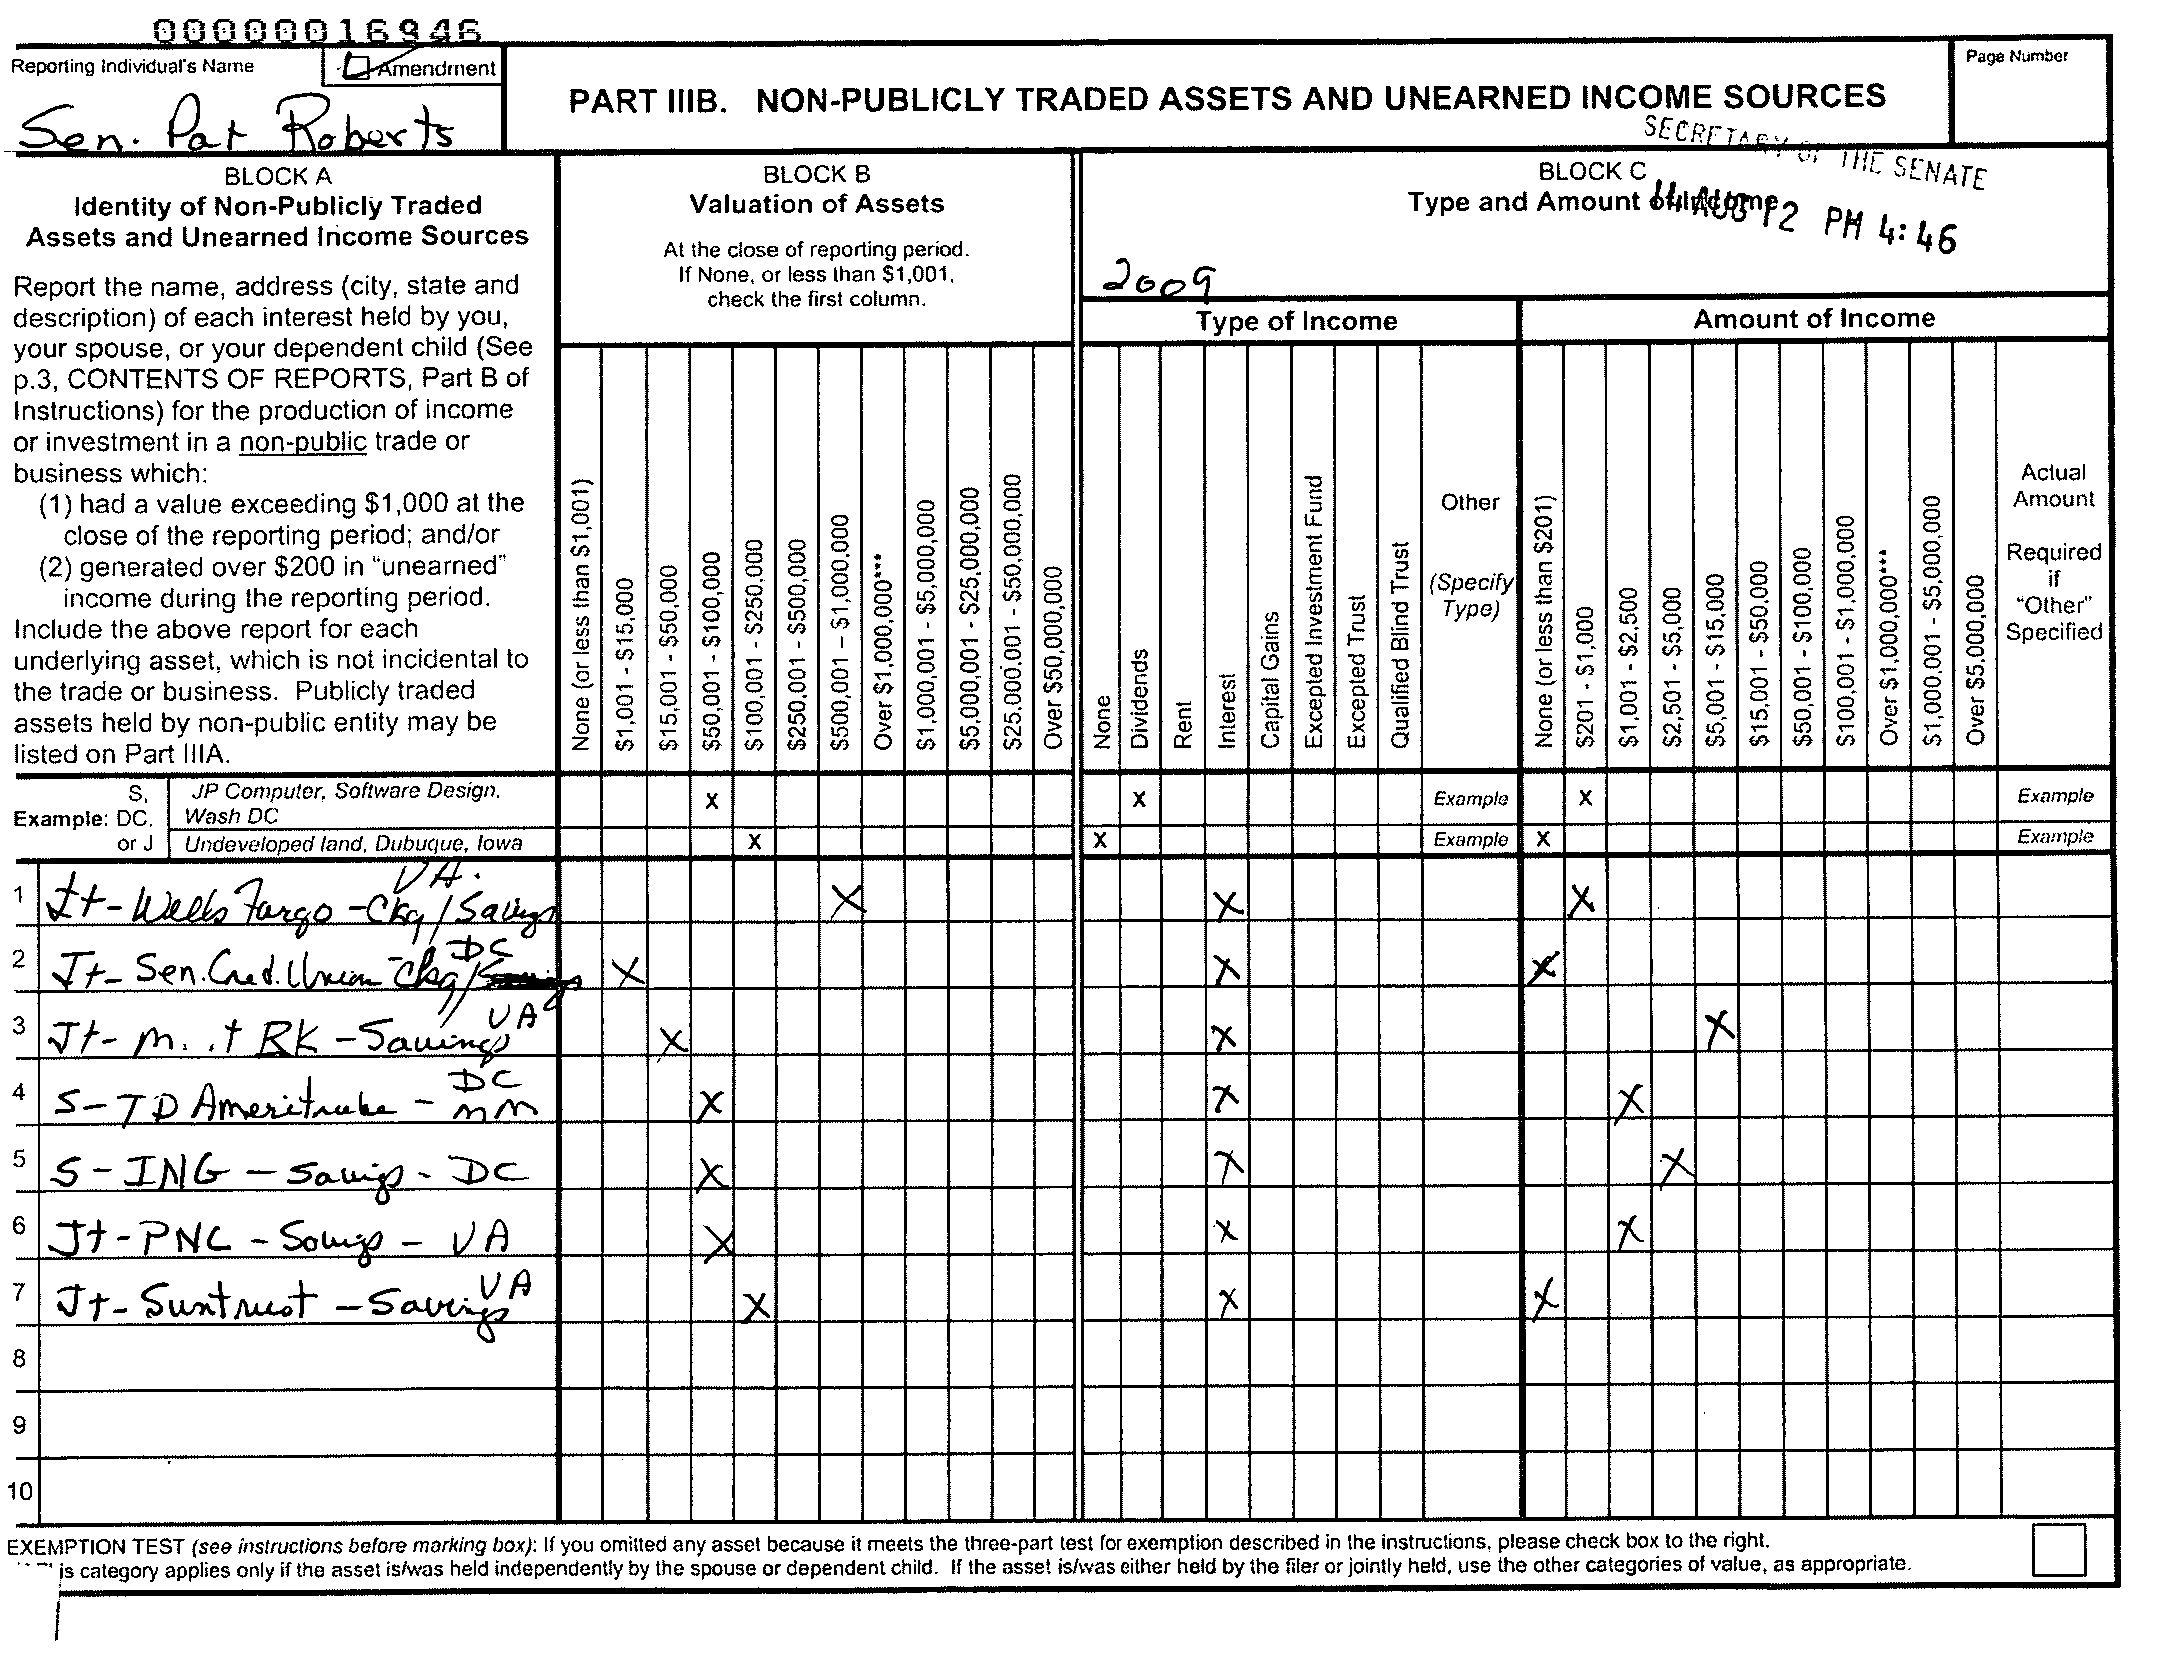 00000016946
Reporting Individual's Name
Amendment
Sen. Pat Roberts
PART IIIB. NON-PUBLICLY TRADED ASSETS AND UNEARNED INCOME SOURCES
Page Number
SECRETARY OF THE SENATE
14 AUG 12 PM 4:46
BLOCK A
Identity of Non-Publicly Traded
Assets and Unearned Income Sources
Report the name, address (city, state and
description) of each interest held by you,
your spouse, or your dependent child (See
p.3, CONTENTS OF REPORTS, Part B of
Instructions) for the production of income
or investment in a non-public trade or
business which:
(1) had a value exceeding $1,000 at the
close of the reporting period; and/or
(2) generated over $200 in "unearned"
income during the reporting period.
Include the above report for each
underlying asset, which is not incidental to
the trade or business. Publicly traded
assets held by non-public entity may be
listed on Part IIIA.
BLOCK B
Valuation of Assets
At the close of reporting period.
If None, or less than $1,001,
check the first column.
None (or less than $1,001)
$1,001 - $15,000
$15,001 - $50,000
$50,001 - $100,000
$100,001 - $250,000
$250,001 - $500,000
$500,001 - $1,000,000
Over $1,000,000***
$1,000,001 - $5,000,000
$5,000,001 - $25,000,000
$25,000,001 - $50,000,000
Over $50,000,000
BLOCK C
Type and Amount of Income
2009
Type of Income
None
Dividends
Rent
Interest
Capital Gains
Excepted Investment Fund
Excepted Trust
Qualified Blind Trust
Other
(Specify
Type)
Amount of Income
None (or less than $201)
$201 - $1,000
$1,001 - $2,500
$2,501 - $5,000
$5,001 - $15,000
$15,001 - $50,000
$50,001 - $100,000
$100,001 - $1,000,000
Over $1,000,000***
$1,000,001 - $5,000,000
Over $5,000,000
Actual
Amount
Required
if
"Other"
Specified
Example: S, DC, or J
JP Computer, Software Design,
Wash DC X X Example X Example
Undeveloped land, Dubuque, Iowa X X Example X Example
VA.
1 Jt - Wells Fargo - Ckg / Savings X X X
DC
2 Jt - Sen. Cred. Union - Ckg / X X X
VA
3 Jt - M. + BK - Savings X X X
DC
4 S - TD Ameritrade - MM X X X
5 S - ING - Savings - DC X X X
6 Jt - PNC - Savings - VA X X X
VA
7 Jt - Suntrust - Savings X X X
8
9
10
EXEMPTION TEST (see instructions before marking box): If you omitted any asset because it meets the three-part test for exemption described in the instructions, please check box to the right.
is category applies only if the asset is/was held independently by the spouse or dependent child. If the asset is/was either held by the filer or jointly held, use the other categories of value, as appropriate.